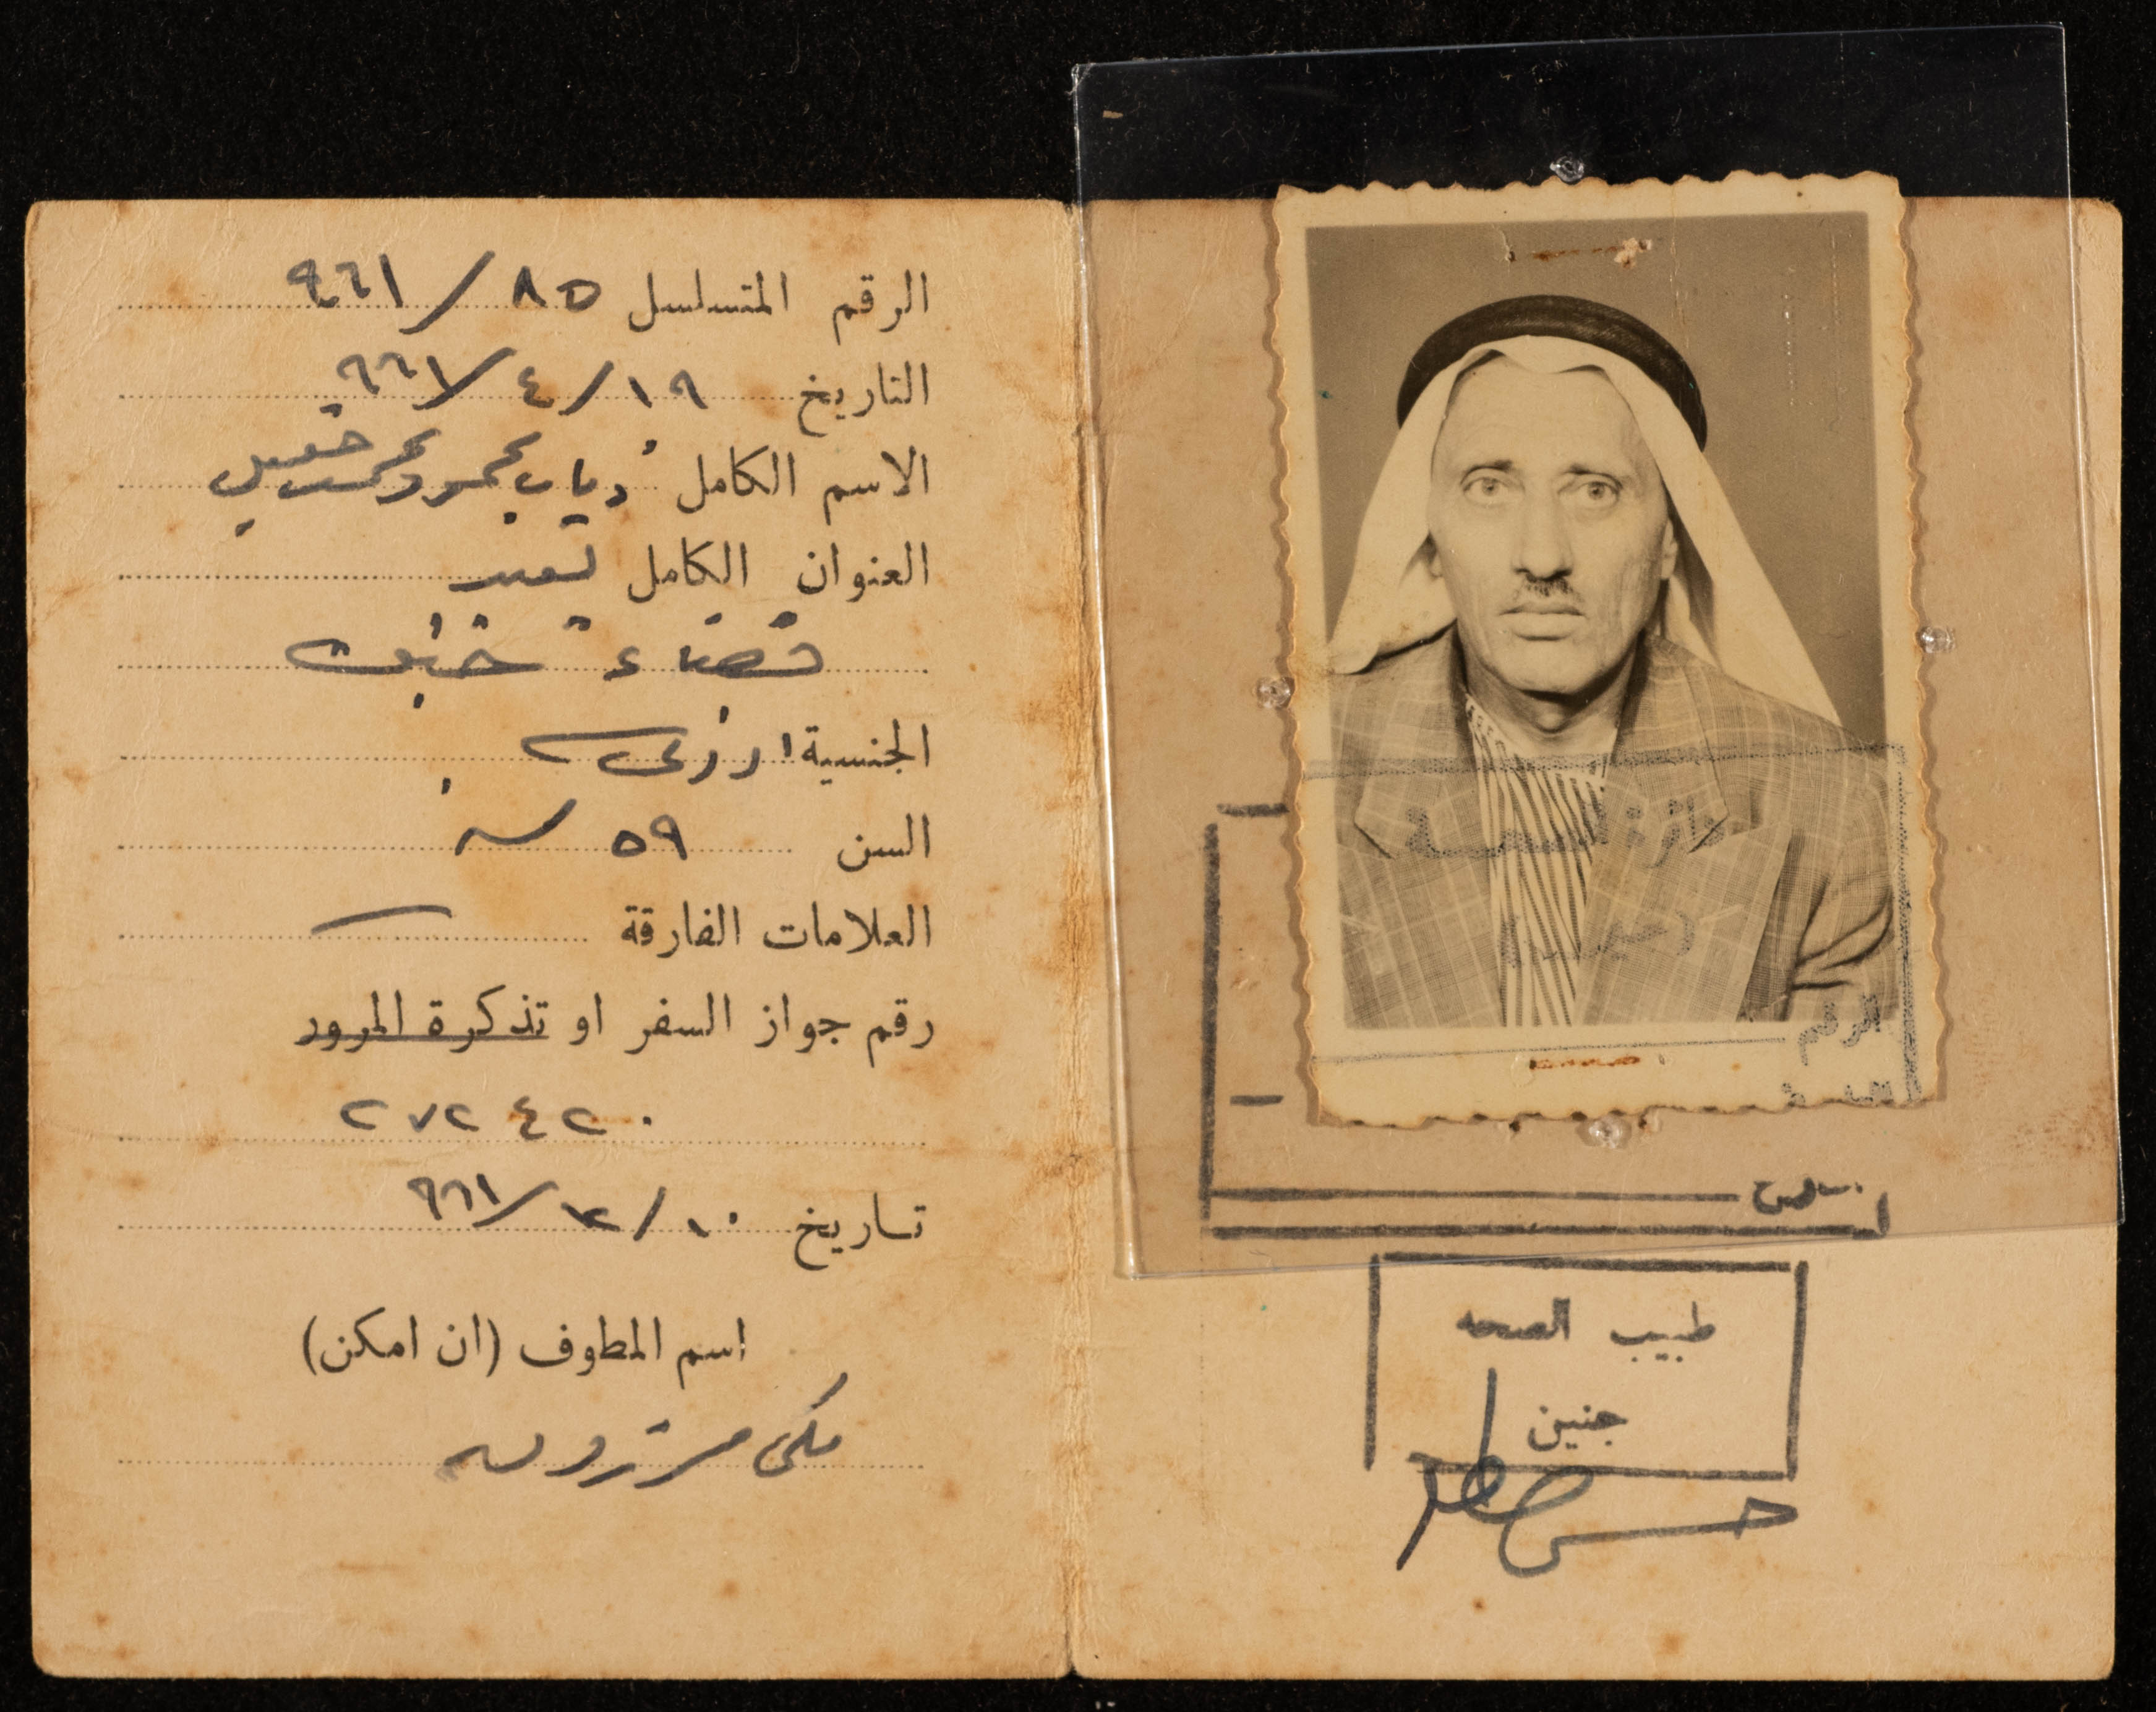 الرقم المتسلسل ٨٥ / ٩٦١
التاريخ ١٩ / ٤ / ٩٦١
الاسم الكامل دياب محمود محمد
العنوان الكامل يعبد
قضاء جنين
الجنسية اردني
السن ٥٩ سنة
العلامات الفارقة
رقم جواز السفر او تذكرة المرور
٢٧٢٤٢٠
تاريخ ١٠ / ٢ / ٩٦١
اسم المطوف (ان امكن)
مكي
دائرة الصحة
(جنين)
الرقم
طبيب الصحه
جنين